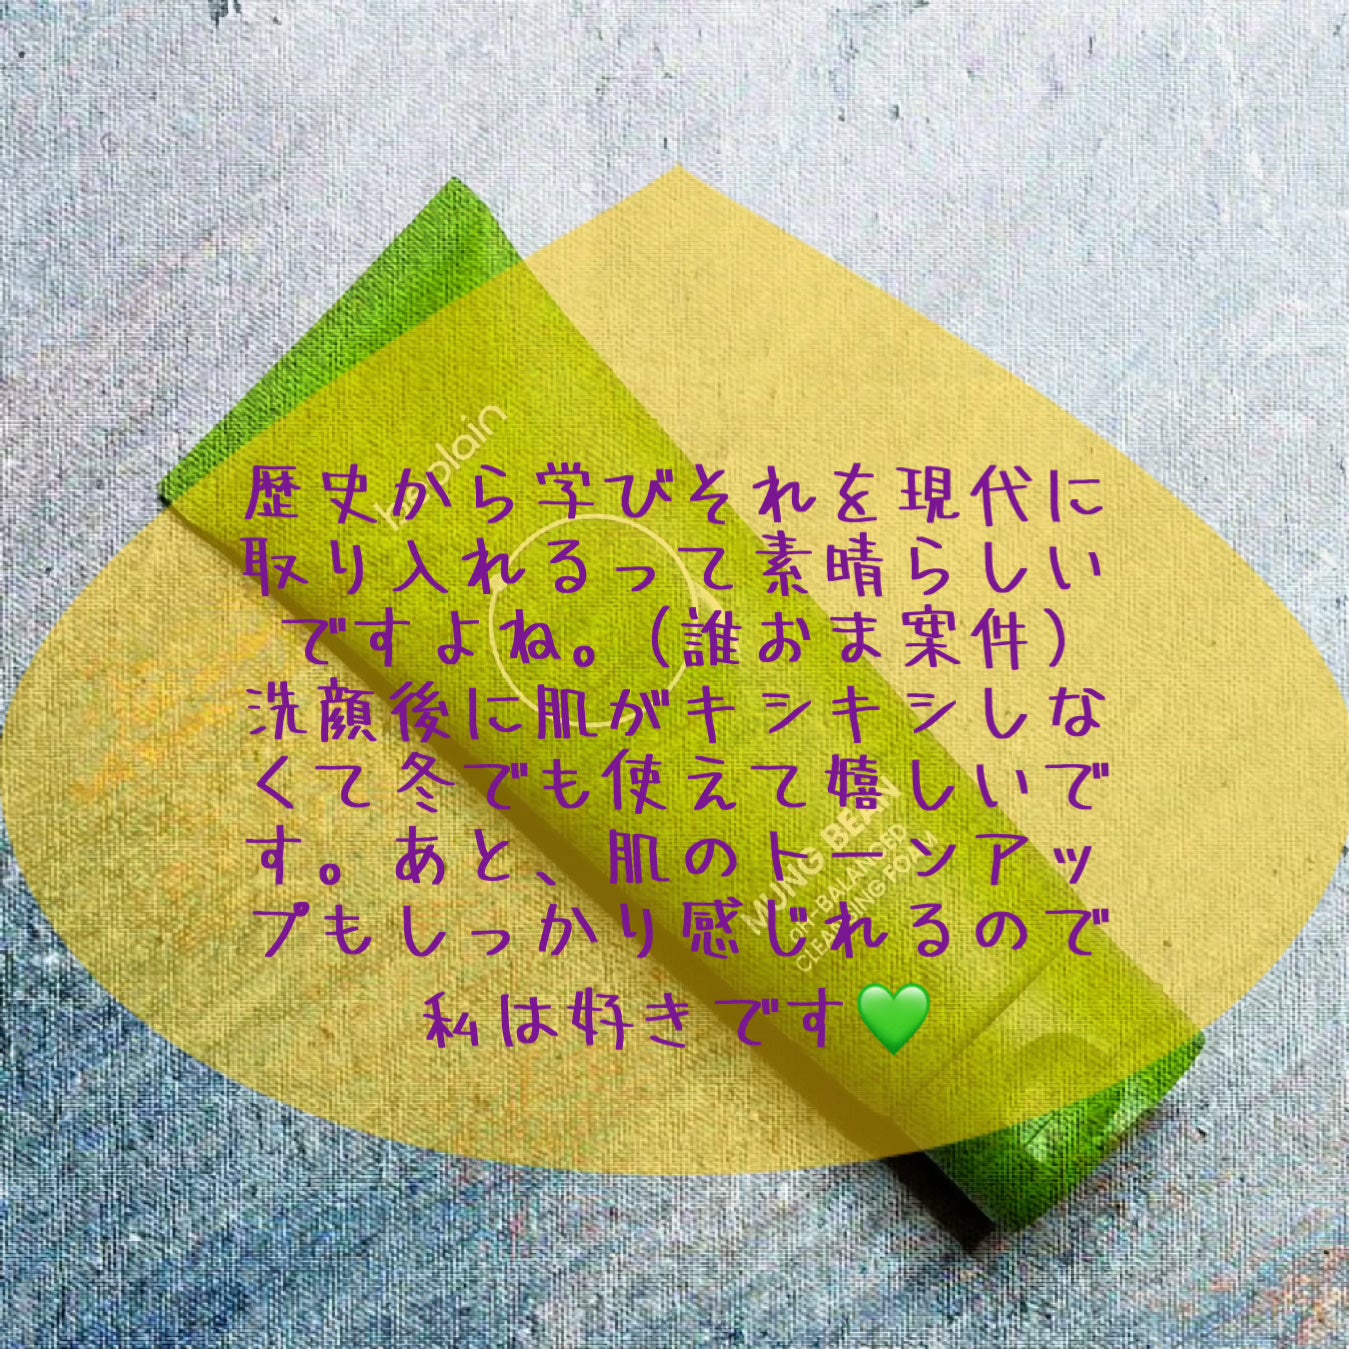 歴史から学びそれを現代に
取り入れるって素晴らしい
ですよね。(誰おま案件)
洗顔後に肌がキシキシしな
くて冬でも使えて嬉しいで
す。あと、肌のトーンアッ
プもしっかり感じれるので
私は好きです💚
plain
MUNG BEAN
pH-BALANCED
CLEANSING FOAM